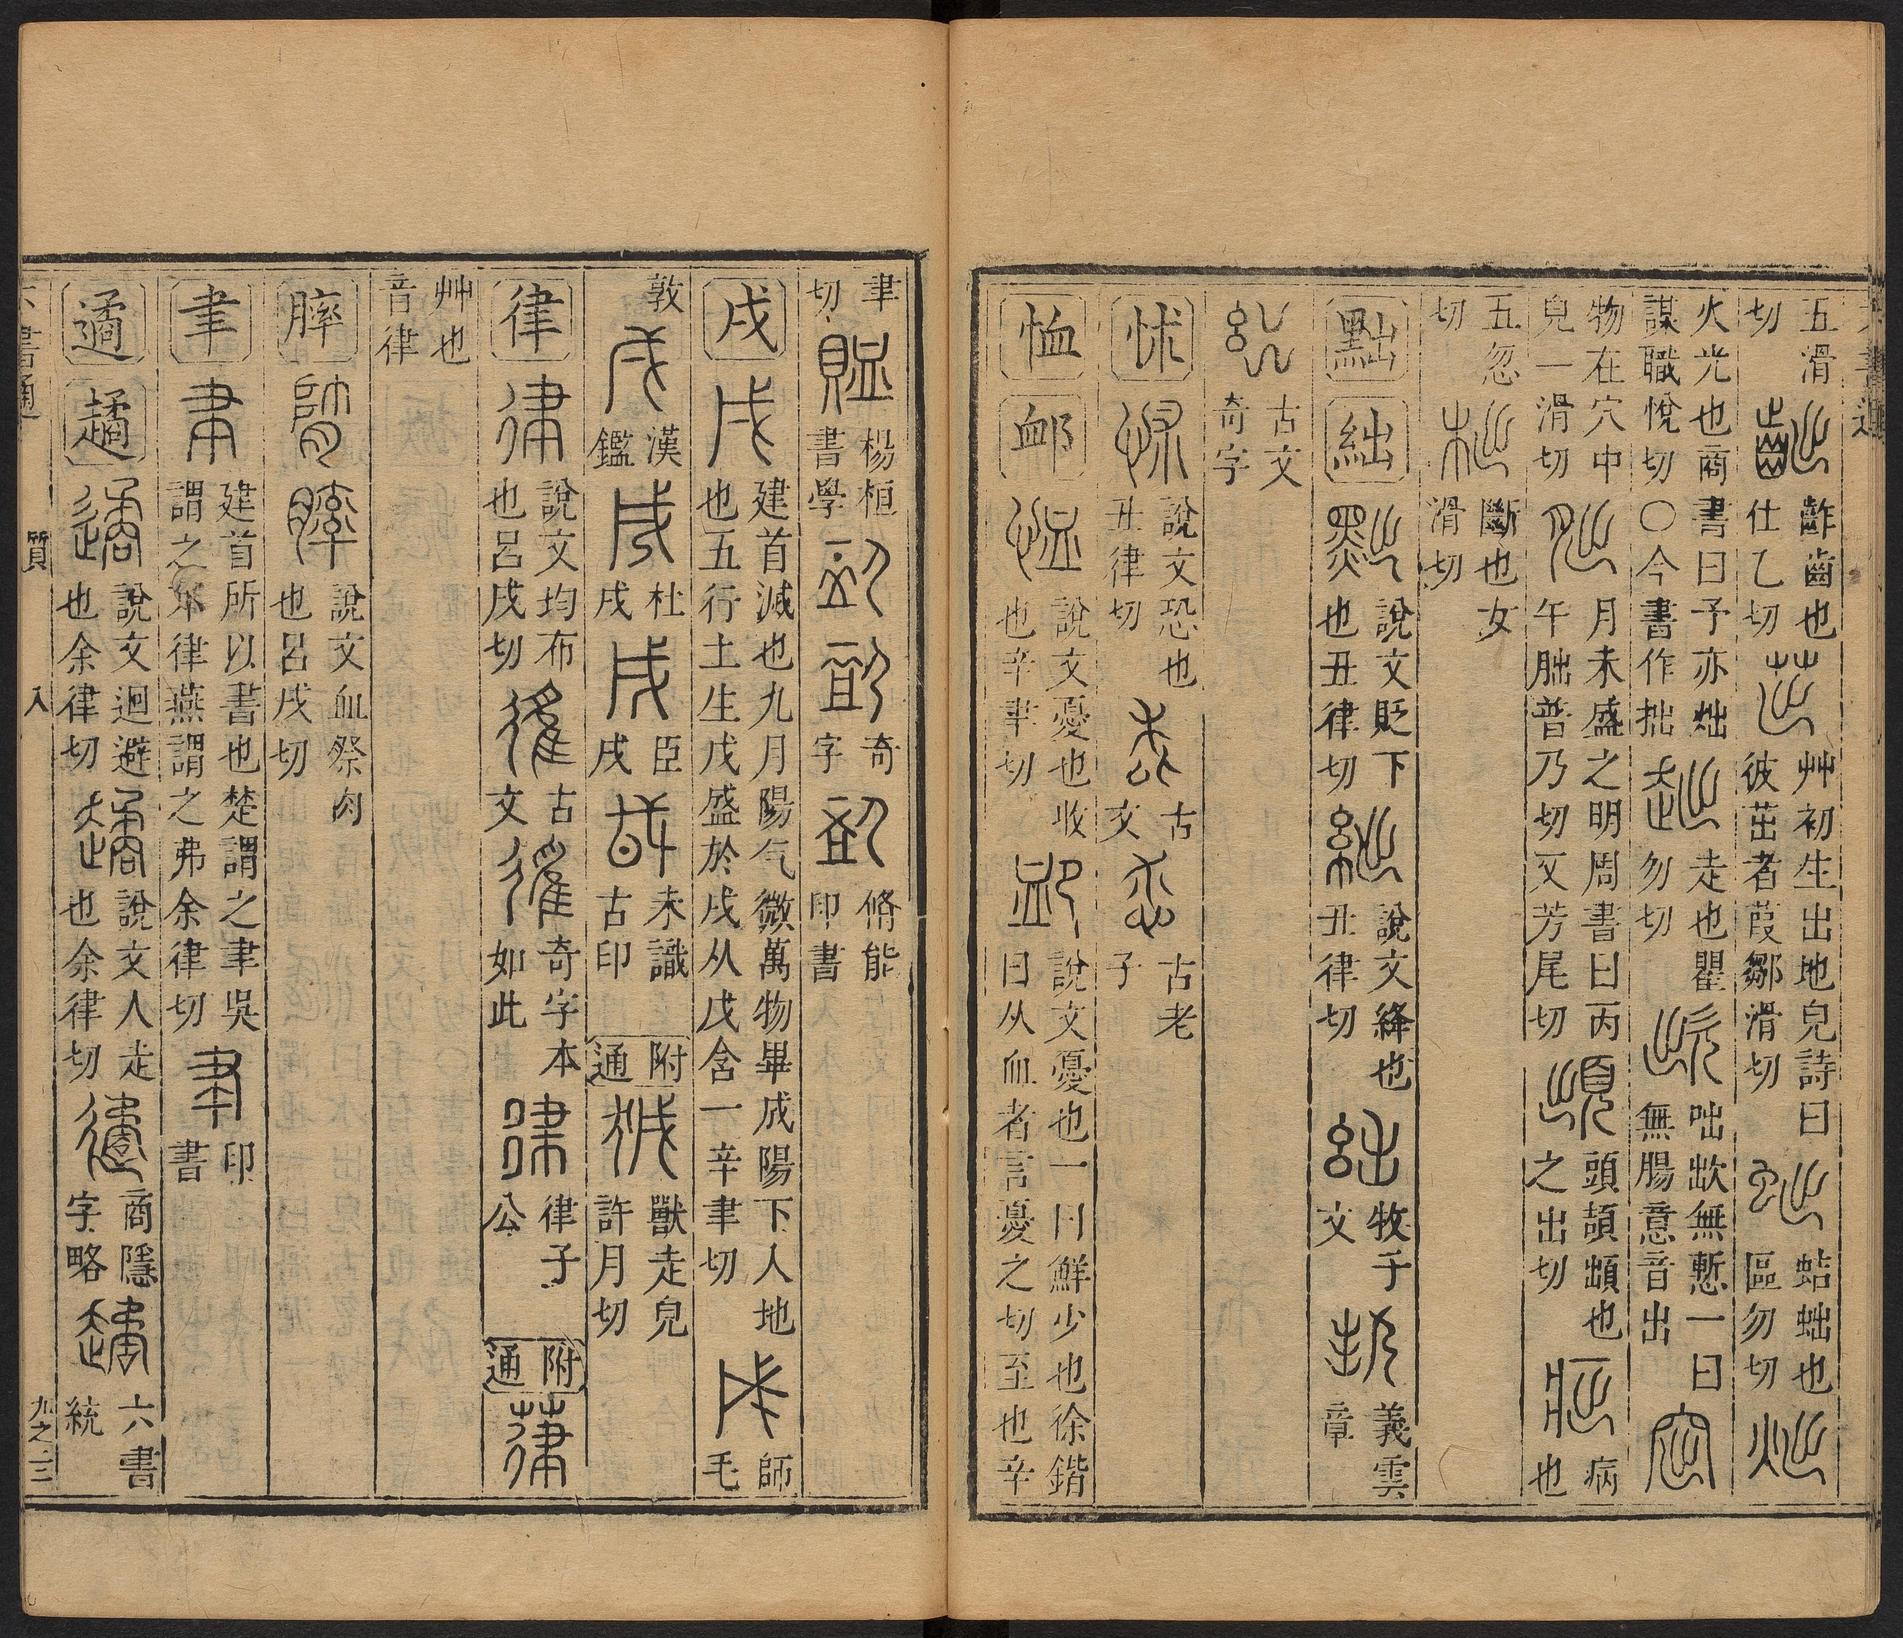 五滑切 齰齒也仕乙切 艸初生出地皃詩曰彼茁者葭鄒滑切 蛣䖦也區勿切
火光也商書曰予亦炪謀職悅切〇今書作拙 走也瞿勿切 咄㰕無慙一曰無腸意音出
物在穴中皃一滑切 月未盛之明周書曰丙午朏普乃切又芳尾切 頭頡䪼也之出切 病也
五忽切 斷也女滑切
黜 絀 說文貶下也丑律切 說文絳也丑律切 牧子文 義雲章
古文奇字
怵 說文恐也丑律切 古文 古老子
恤 卹 說文憂也收也辛聿切 說文憂也一曰鮮少也徐鍇曰从血者言憂之切至也辛
聿切 楊桓書學 奇字 脩能印書
戌 建首滅也九月陽气微萬物畢成陽下入地也五行土生戊盛於戌从戊含一辛聿切 師毛
敦 漢鑑 杜戌 臣戌 未識古印 附通 獸走皃許月切
律 說文均布也呂戌切 古文 奇字本如此 律子公 附通
艸也音律
膟 說文血祭肉也呂戌切
聿 建首所以書也楚謂之聿吳謂之不律燕謂之弗余律切 印書
遹 䟐 說文迴避也余律切 說文人走也余律切 商隱字略 六書統
六書通 質 入 九之三